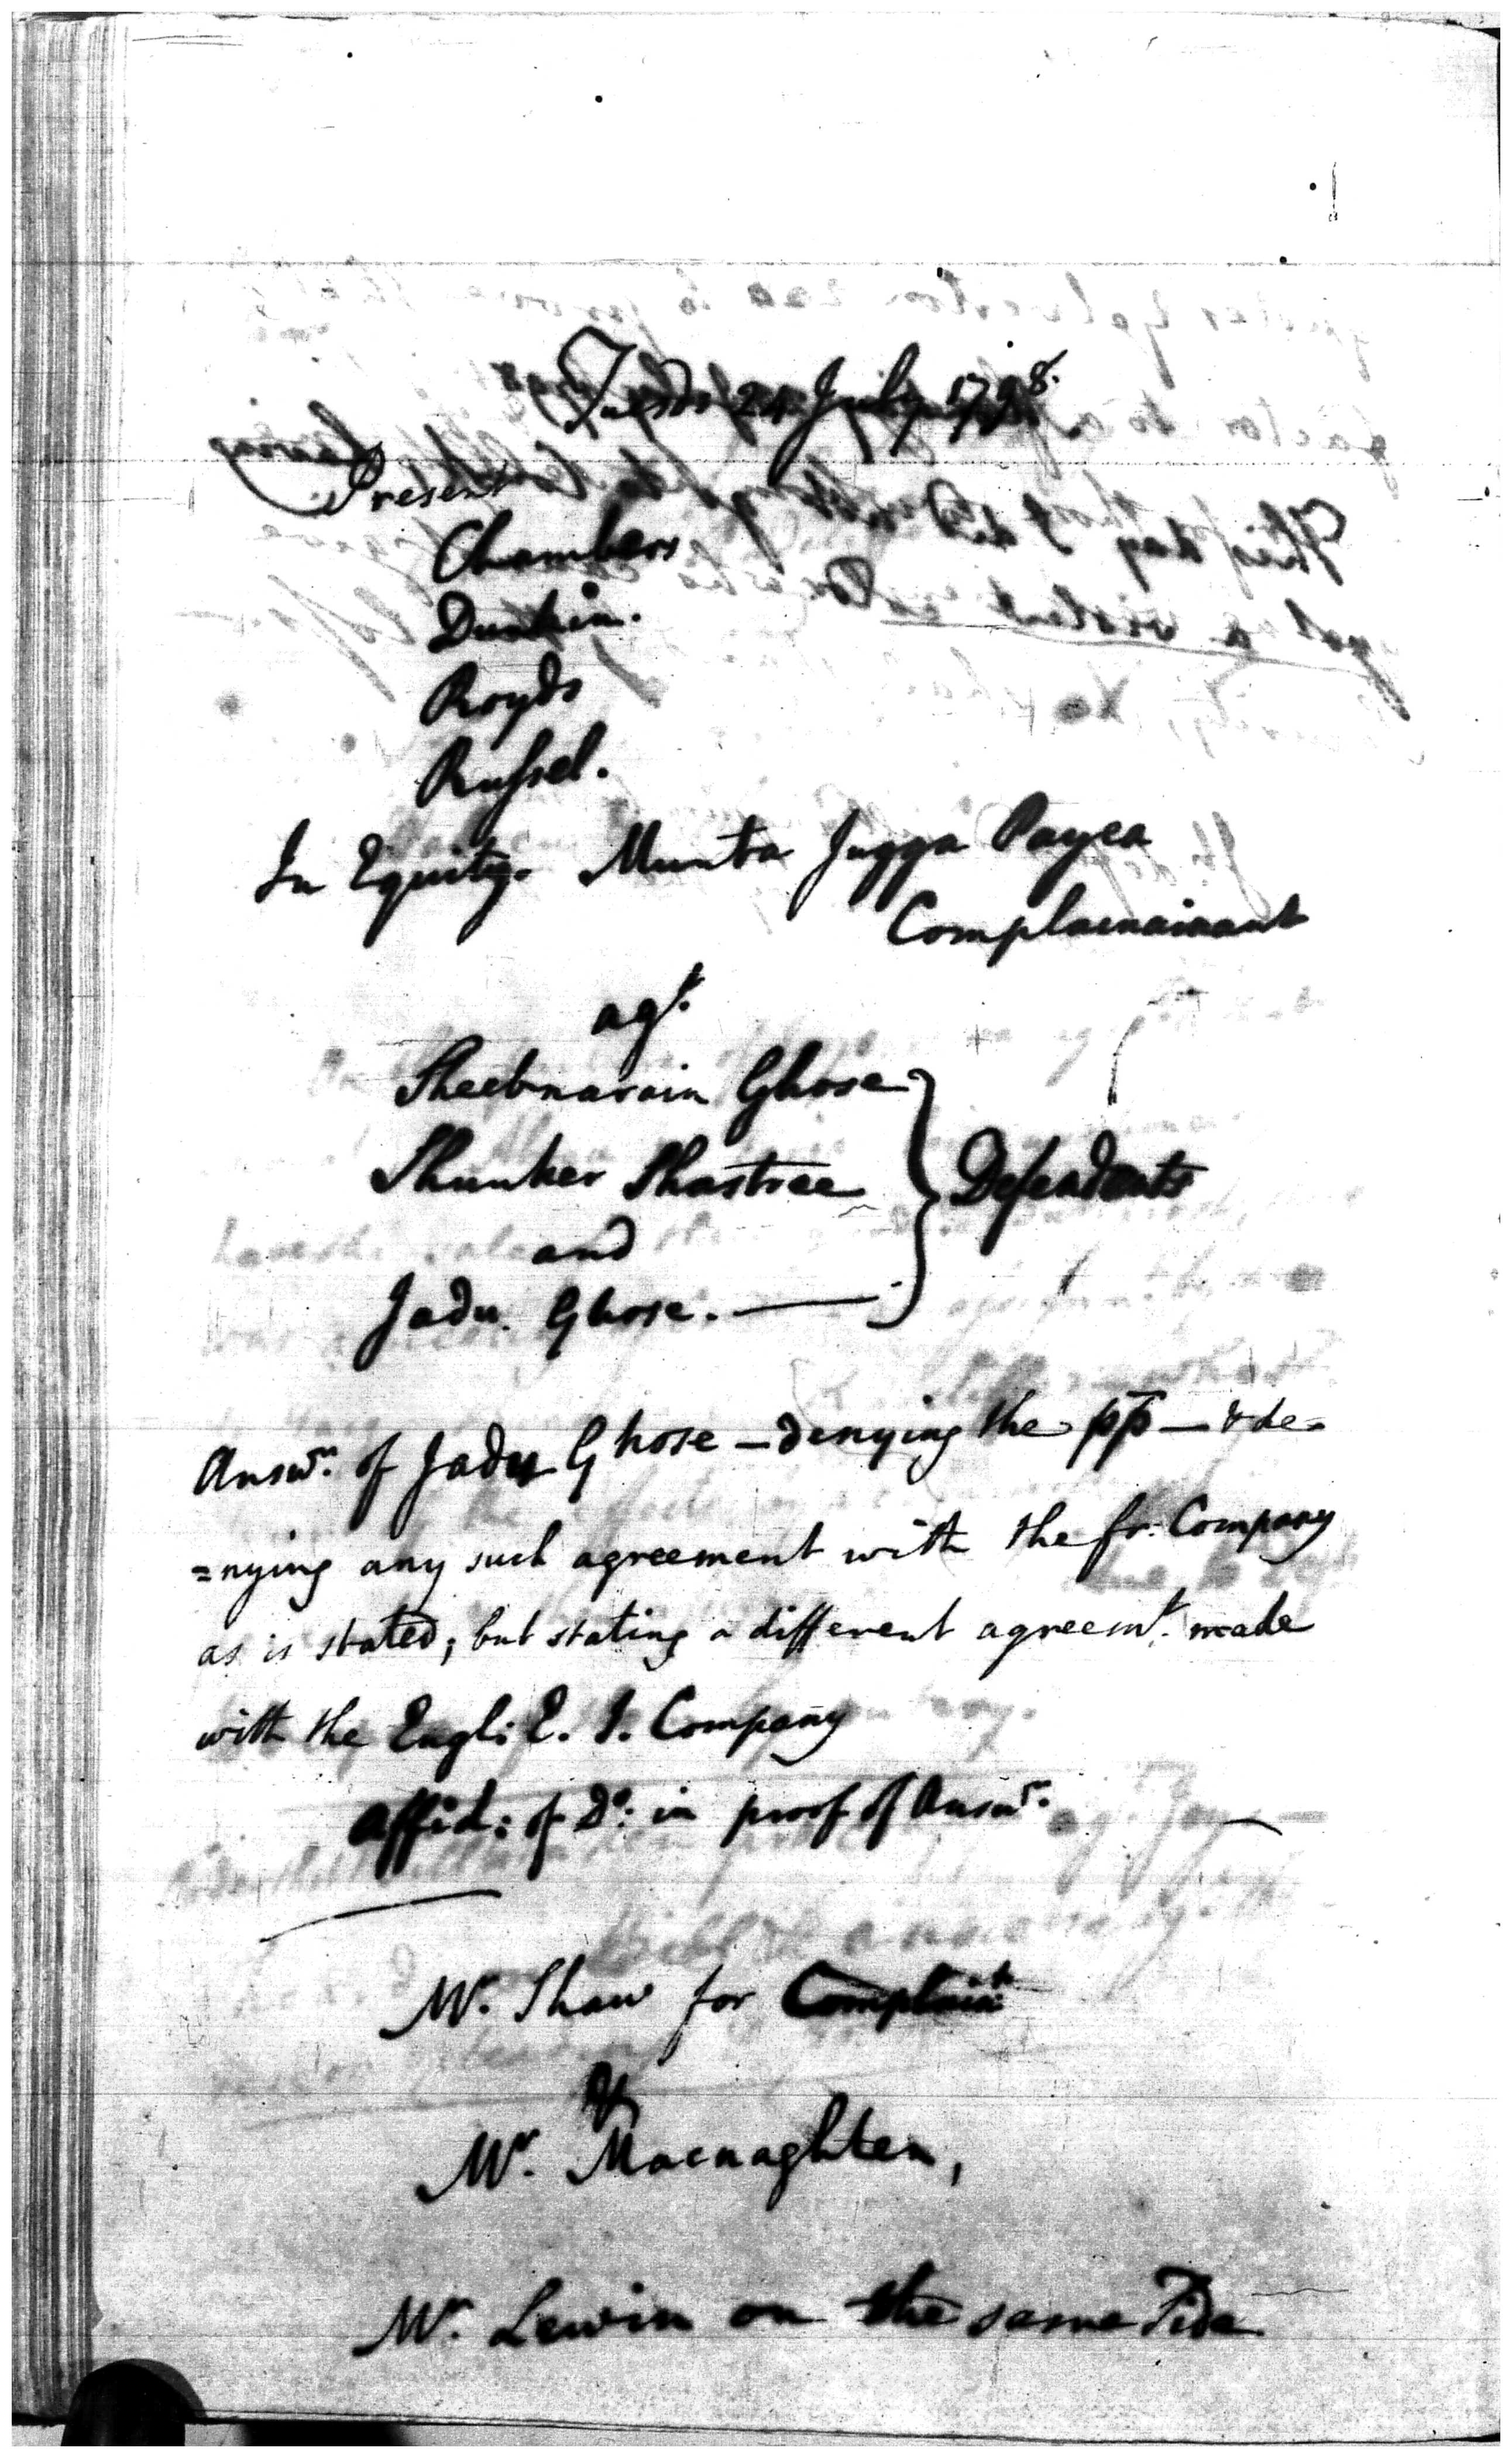 Tuesd. 24 July 1798.
Present
Chambers
Dunkin.
Royds
Russel.
In Equity. Munta Jugga Payea
Complainainant
agt.
Sheebnarain Ghose
Shunker Shastree
and
Jadu. Ghose.
Defendents
Answr. of Jadu Ghose – denying the pp – & de-
=nying any such agreement with the fr. Company
as is stated; but stating a different agreemt. made
with the Engl: E. I. Company
Affid: of Do: in proof of Answr.
Mr. Shaw for Complaint
Mr. Macnaghten,
Mr. Lewin on the same Side